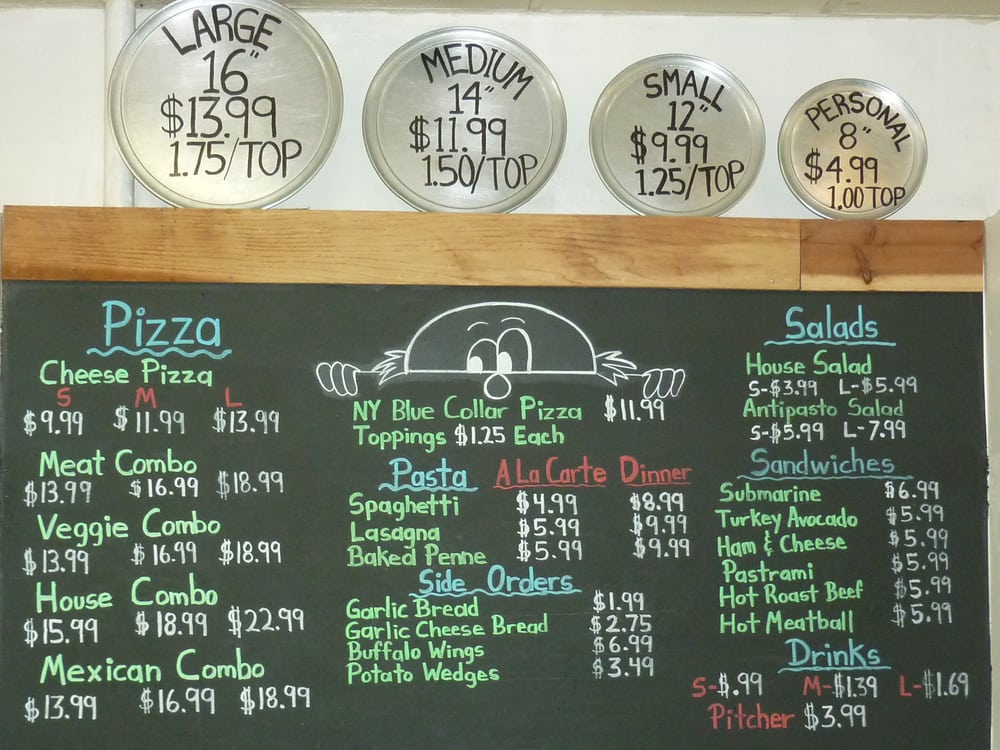 LARGE
16"
$13.99
1.75/TOP
MEDIUM
14"
$11.99
1.50/TOP
SMALL
12"
$9.99
1.25/TOP
PERSONAL
8"
$4.99
1.00 TOP
Pizza
Cheese Pizza
S M L
$9.99 $11.99 $13.99
Meat Combo
$13.99 $16.99 $18.99
Veggie Combo
$13.99 $16.99 $18.99
House Combo
$15.99 $18.99 $22.99
Mexican Combo
$13.99 $16.99 $18.99
NY Blue Collar Pizza $11.99
Toppings $1.25 Each
Pasta A La Carte Dinner
Spaghetti $4.99 $8.99
Lasagna $5.99 $9.99
Baked Penne $5.99 $9.99
Side Orders
Garlic Bread $1.99
Garlic Cheese Bread $2.75
Buffalo Wings $6.99
Potato Wedges $3.49
Salads
House Salad
S-$3.99 L-$5.99
Antipasto Salad
S-$5.99 L-7.99
Sandwiches
Submarine $6.99
Turkey Avocado $5.99
Ham & Cheese $5.99
Pastrami $5.99
Hot Roast Beef $5.99
Hot Meatball $5.99
Drinks
S-$.99 M-$1.39 L-$1.69
Pitcher $3.99